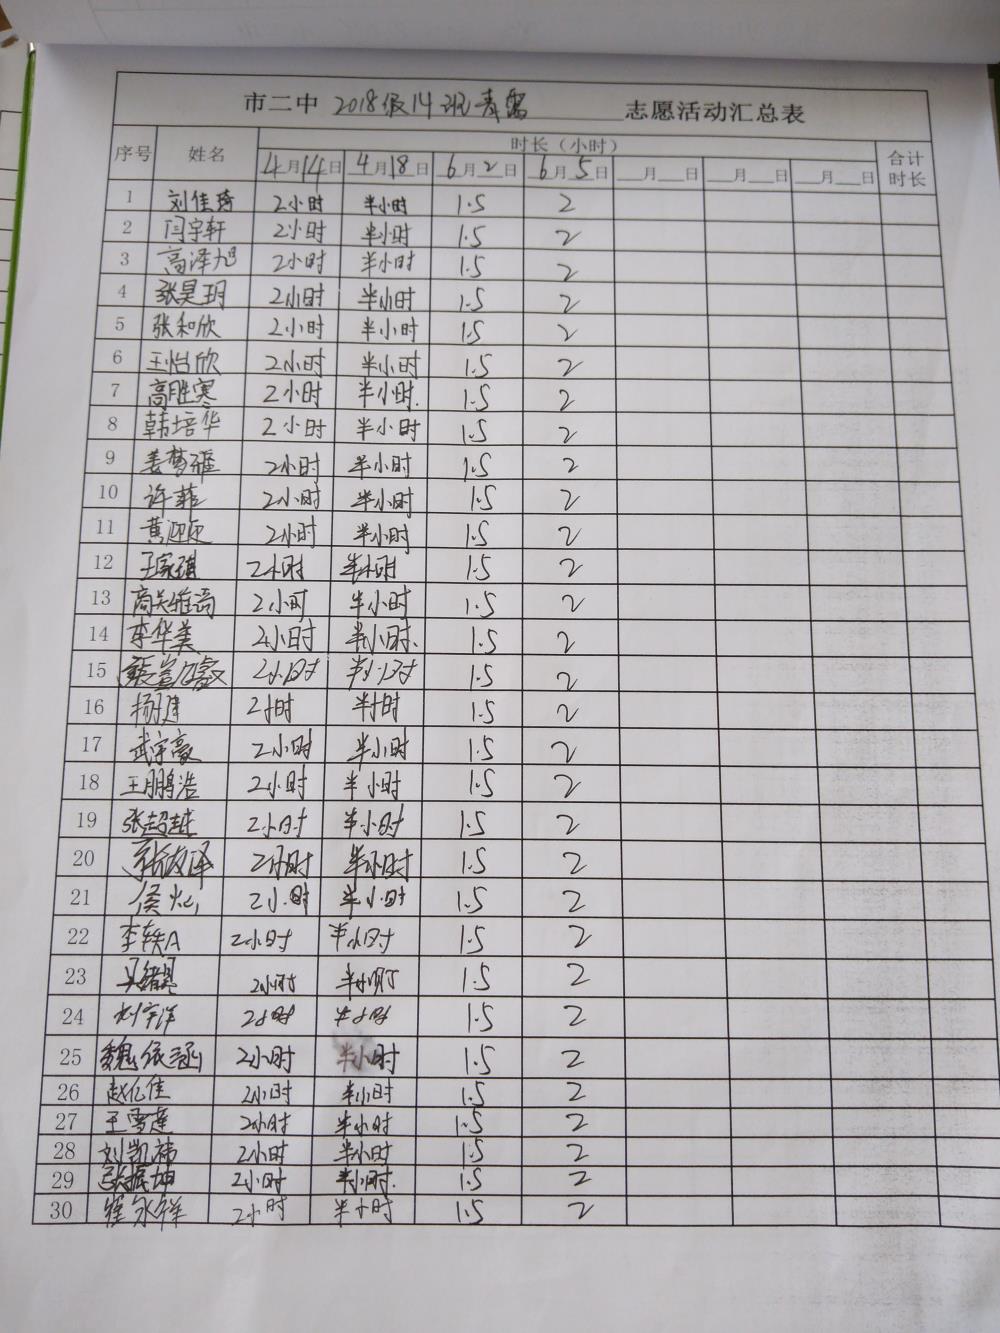 市二中 2018级14班青 志愿活动汇总表
序号 姓名 时长（小时） 合计时长
4月14日 4月18日 6月2日 6月5日 月 日 月 日 月 日
1 刘佳琦 2小时 半小时 1.5 2
2 闫宇轩 2小时 半小时 1.5 2
3 高泽旭 2小时 半小时 1.5 2
4 张昊玥 2小时 半小时 1.5 2
5 张和欣 2小时 半小时 1.5 2
6 王怡欣 2小时 半小时 1.5 2
7 高胜寒 2小时 半小时. 1.5 2
8 韩培华 2小时 半小时 1.5 2
9 姜梦 2小时 半小时 1.5 2
10 许菲 2小时 半小时 1.5 2
11 黄迎 2小时 半小时 1.5 2
12 王家琪 2小时 半小时 1.5 2
13 2小时 半小时 1.5 2
14 李华美 2小时 半小时. 1.5 2
15 2小时 半小时 1.5 2
16 杨建 2小时 半小时 1.5 2
17 武宇豪 2小时 半小时 1.5 2
18 王鹏浩 2小时 半小时 1.5 2
19 张超越 2小时 半小时 1.5 2
20 2小时 半小时 1.5 2
21 侯 2小时 半小时 1.5 2
22 李轶A 2小时 半小时 1.5 2
23 2小时 半小时 1.5 2
24 刘宇洋 2小时 半小时 1.5 2
25 魏依涵 2小时 半小时 1.5 2
26 赵亿佳 2小时 半小时 1.5 2
27 王雪莲 2小时 半小时 1.5 2
28 刘凯祎 2小时 半小时 1.5 2
29 张振坤 2小时 半小时. 1.5 2
30 崔永祥 2小时 半小时 1.5 2